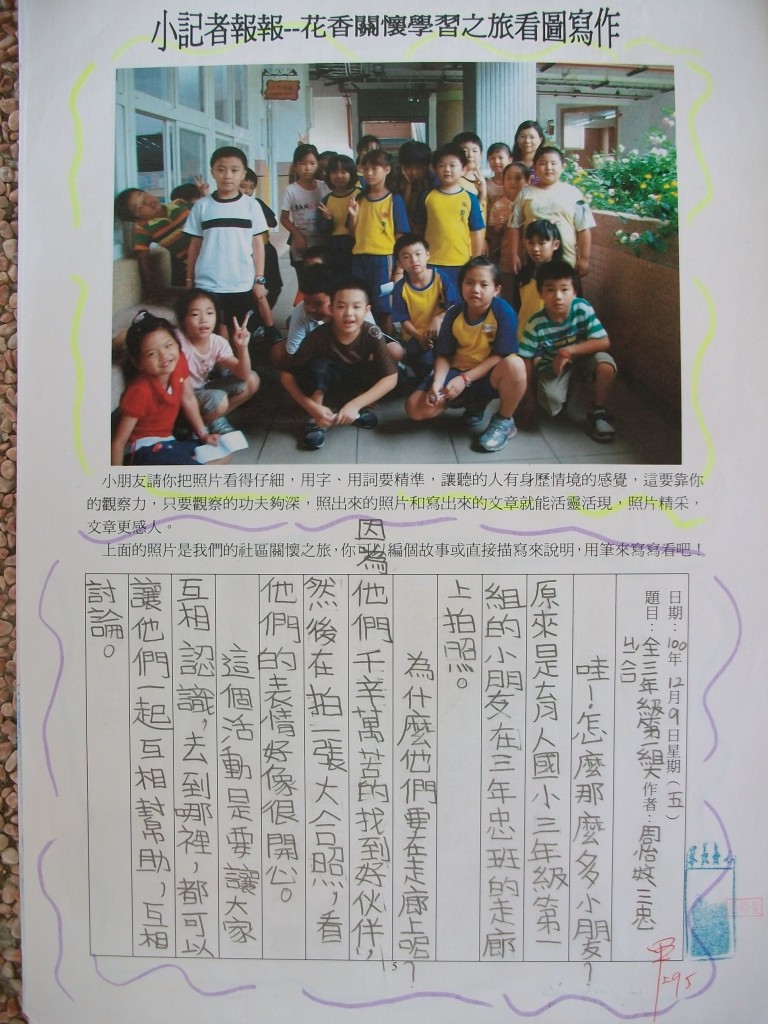 小記者報報--花香關懷學習之旅看圖寫作
小朋友請你把照片看得仔細，用字、用詞要精準，讓聽的人有身歷情境的感覺，這要靠你
的觀察力，只要觀察的功夫夠深，照出來的照片和寫出來的文章就能活靈活現，照片精采，
文章更感人。
上面的照片是我們的社區關懷之旅，你可以編個故事或直接描寫來說明，用筆來寫寫看吧！
日期：100年12月9日星期（五）
題目：全三年級第一組大合照 作者：周怡 三忠
哇！怎麼那麼多小朋友？
原來是育人國小三年級第一
組的小朋友在三年忠班的走廊
上拍照。
為什麼他們要在走廊上呢？
因為他們千辛萬苦的找到好伙伴，
然後在拍一張大合照，看
他們的表情好像很開心。
這個活動是要讓大家
互相認識，去到哪裡，都可以
讓他們一起互相幫助，互相
討論。
5
甲
95